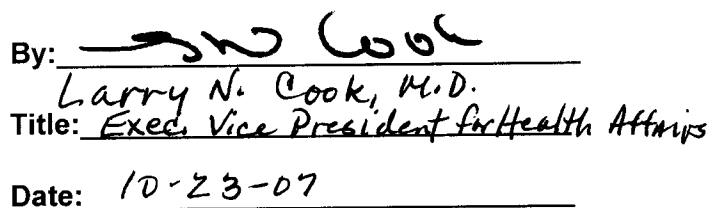 By: LN Cook
Larry N. Cook, M.D.
Title: Exec. Vice President for Health Affairs
Date: 10-23-07